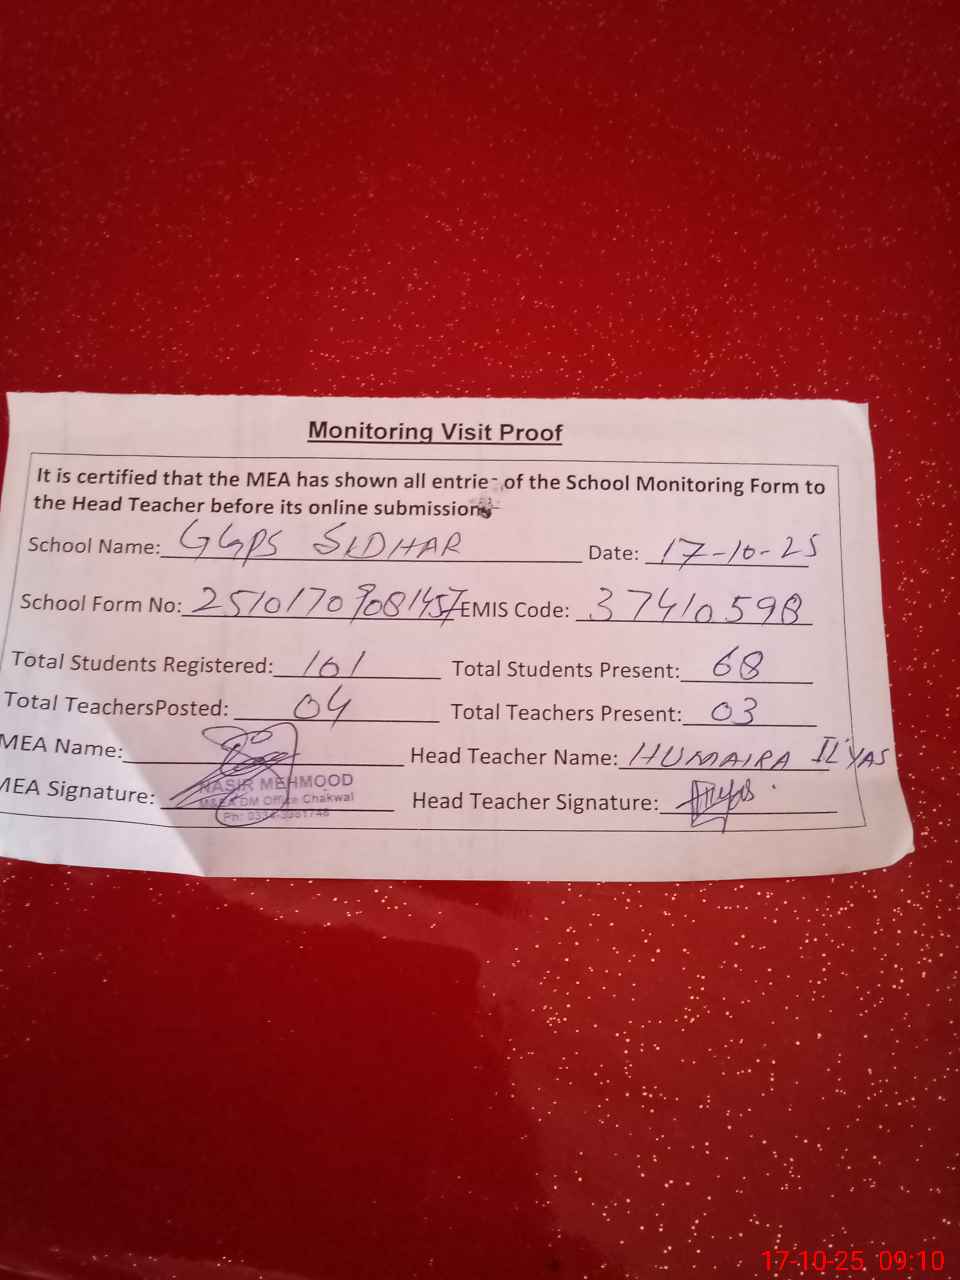 Monitoring Visit Proof
It is certified that the MEA has shown all entrie of the School Monitoring Form to
the Head Teacher before its online submission
School Name: GGPS SIDHAR Date: 17-10-25
School Form No: EMIS Code: 37410598
Total Students Registered: 101 Total Students Present: 68
Total TeachersPosted: 04 Total Teachers Present: 03
MEA Name: Head Teacher Name: HUMAIRA ILYAS
MEA Signature: NASIR MEHMOOD Head Teacher Signature:
DM Office Chakwal
17-10-25 09:10